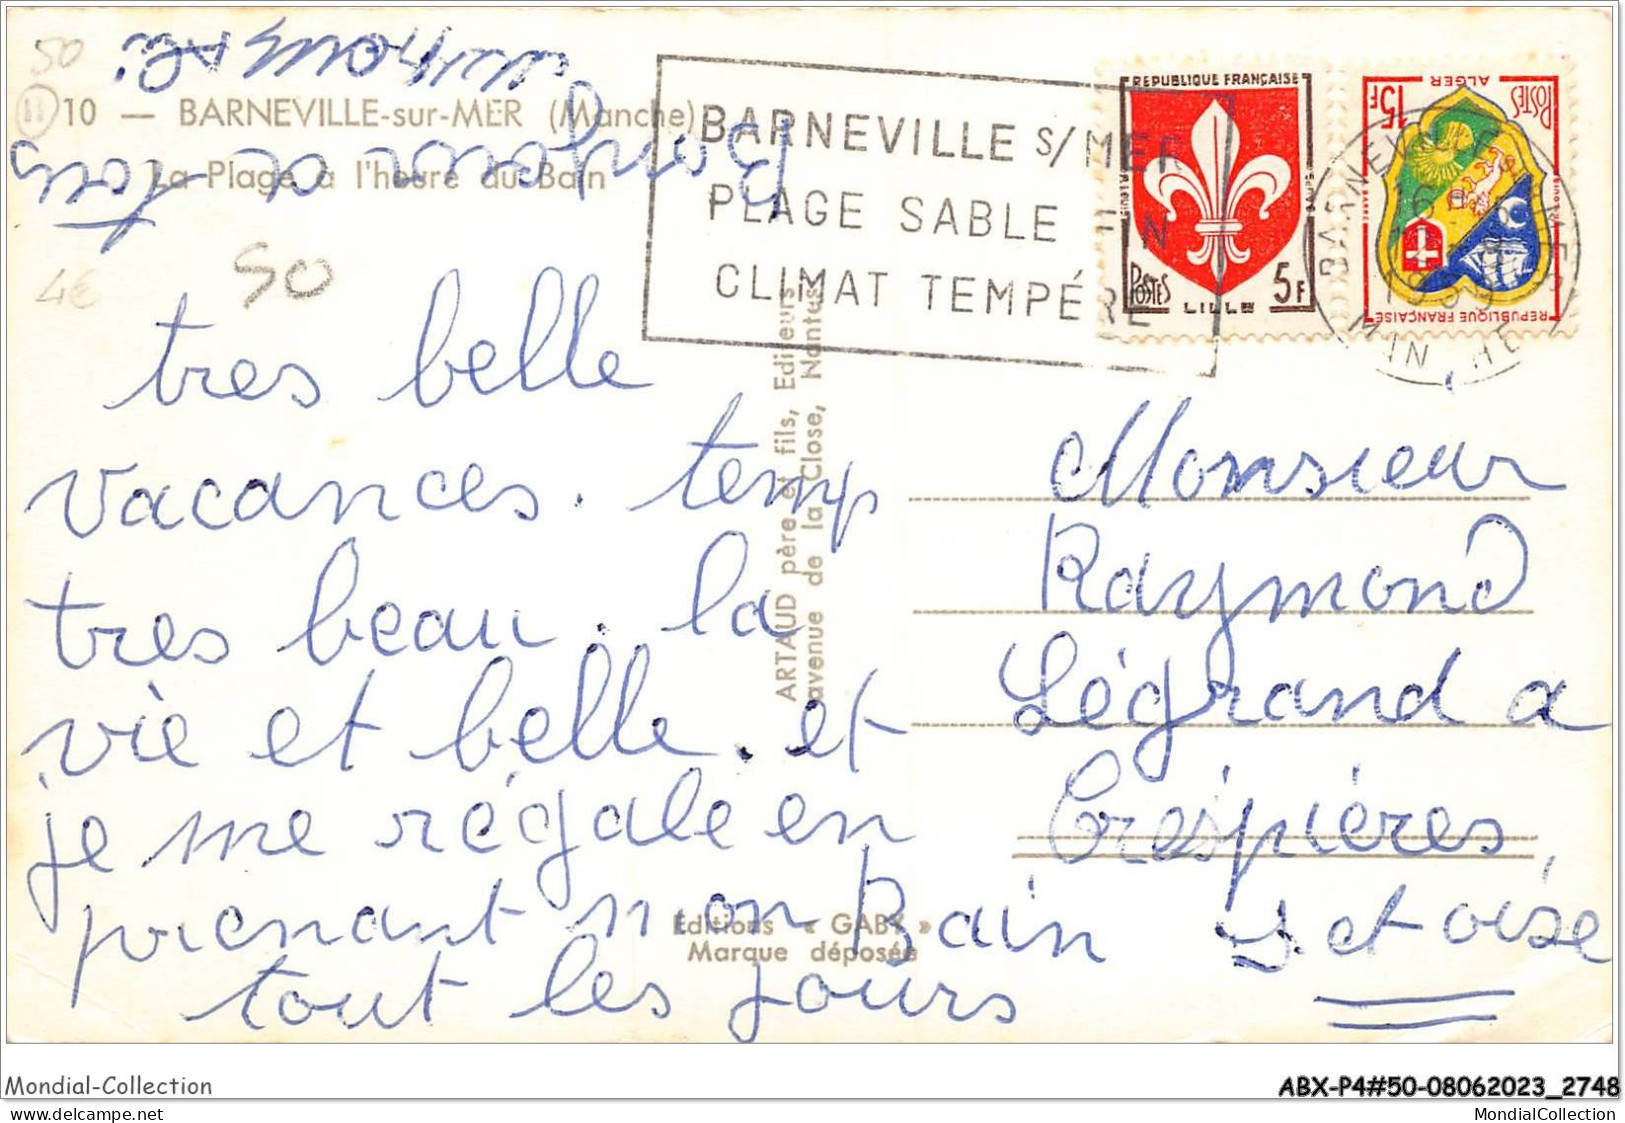 50
11
10 — BARNEVILLE-sur-MER (Manche)
La Plage à l'heure du Bain
Bonjour a tous
50
4€
BARNEVILLE S/ MER
PLAGE SABLE FIN
CLIMAT TEMPÉRÉ
REPUBLIQUE FRANÇAISE
POSTES
LILLE
5F
POSTES
ALGER
15F
REPUBLIQUE FRANÇAISE
BARNEVILLE
1959
tres belle
vacances. temp
tres beau. la
vie et belle. et
je me régale en
prenant mon Bain
tout les jours
ARTAUD père et fils, Editeurs
avenue de la Close, Nantes
Editions « GABY »
Marque déposée
Monsieur
Raymond
Légrand a
Crespiéres,
S et oise
Mondial-Collection
ABX-P4#50-08062023_2748
© delcampe.net
MondialCollection